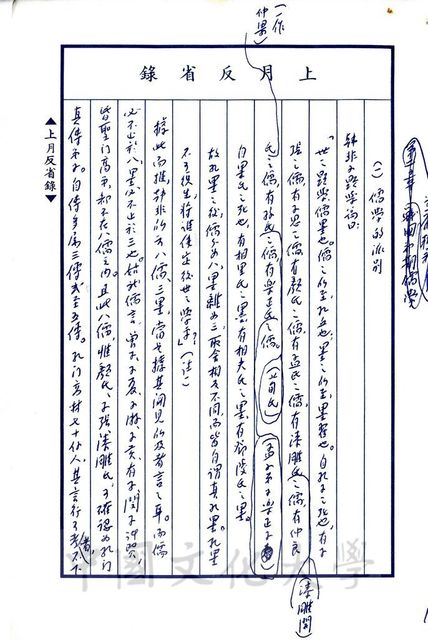 第二章 戰國初期儒學
(一) 儒學的派別
韓非子顯學篇曰:
「世之顯學,儒墨也。儒之所至,孔丘也。墨之所至,墨翟也。自孔子之死也,有子
張之儒,有子思之儒,有顏氏之儒,有孟氏之儒,有漆雕氏之儒,有仲良
氏之儒,有孫氏之儒,有樂正氏之儒。
自墨子之死也,有相里氏之墨,有相夫氏之墨,有鄧陵氏之墨。
故孔墨之後,儒分為八,墨離為三,取舍相反不同,而皆自謂真孔墨。孔墨
不可復生,將誰使定後世之學乎?」(注一)
據此而推,韓非所謂八儒、三墨,當是據其聞見所及者言之耳。而儒
必不止於八,墨必不止於三也。姑就儒言,曾子、子夏、子游、子貢、有子、閔子、冉
皆聖門高弟,却不在八儒之內。且此八儒,惟顏氏、子張、漆雕氏,可確認為孔門
真傳弟子。自傳多為三傳或至五傳。孔門高材七十餘人,其言行可考者不下
一作
仲梁
(公司氏)
(孟子弟子樂正子)
(漆雕開)
上月反省錄
▲上月反省錄▼
中國文化大學